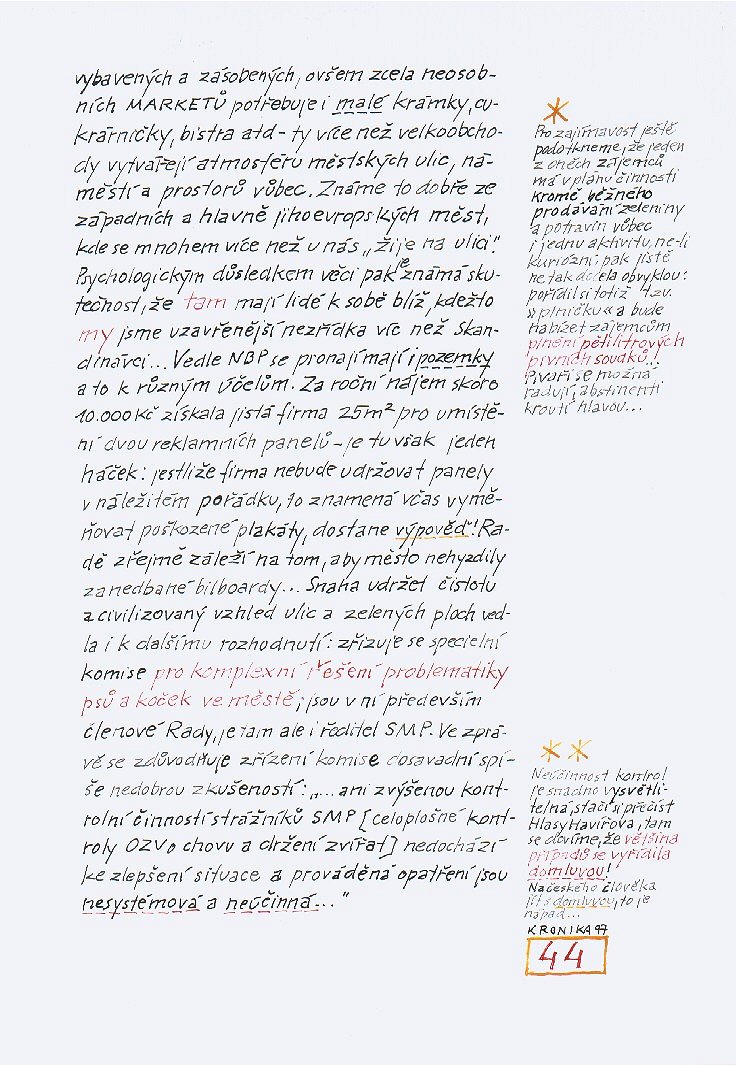 vybavených a zásobených, ovšem zcela neosob-
ních MARKETŮ potřebuje i malé krámky, cu-
krárničky, bistra atd - ty více než velkoobcho-
dy vytvářejí atmosféru městských ulic, ná-
městí a prostorů vůbec. Známe to dobře ze
západních a hlavně jihoevropských měst,
kde se mnohem více než u nás „žije na ulici".
Psychologickým důsledkem věci pak je známá sku-
tečnost, že tam mají lidé k sobě blíž, kdežto
my jsme uzavřenější nezřídka víc než skan-
dinávci... Vedle NBP se pronajímají i pozemky
a to k různým účelům. Za roční nájem skoro
10.000 Kč získala jistá firma 25m² pro umístě-
ní dvou reklamních panelů - je tu však jeden
háček: jestliže firma nebude udržovat panely
v náležitém pořádku, to znamená včas vymě-
ňovat poškozené plakáty, dostane výpověď! Ra-
dě zřejmě záleží na tom, aby město nehyzdily
zanedbané bilboardy... Snaha udržet čistotu
a civilizovaný vzhled ulic a zelených ploch ved-
la i k dalšímu rozhodnutí: zřizuje se specielní
komise pro komplexní řešení problematiky
psů a koček ve městě; jsou v ní především
členové Rady, je tam ale i ředitel SMP. Ve zprá-
vě se zdůvodňuje zřízení komise dosavadní spí-
še nedobrou zkušeností: „... ani zvýšenou kont-
rolní činností strážníků SMP [celoplošné kont-
roly OZV o chovu a držení zvířat] nedochází
ke zlepšení situace a prováděná opatření jsou
nesystémová a neúčinná..."
*
Pro zajímavost ještě
podotkneme, že jeden
z oněch zájemců
má v plánu činnosti
kromě běžného
prodávání zeleniny
a potravin vůbec
i jednu aktivitu, ne-li
kuriózní, pak jistě
ne tak docela obvyklou:
pořídil si totiž tzv.
»plničku« a bude
nabízet zájemcům
plnění pětilitrových
pivních soudků!
Pivaři se možná
radují, abstinenti
kroutí hlavou...
* *
Neúčinnost kontrol
je snadno vysvětli-
telná, stačí si přečíst
Hlasy Havířova, tam
se dovíme, že většina
případů se vyřídila
domluvou!
Na českého člověka
jít s domluvou, to je
nápad...
KRONIKA 97
44